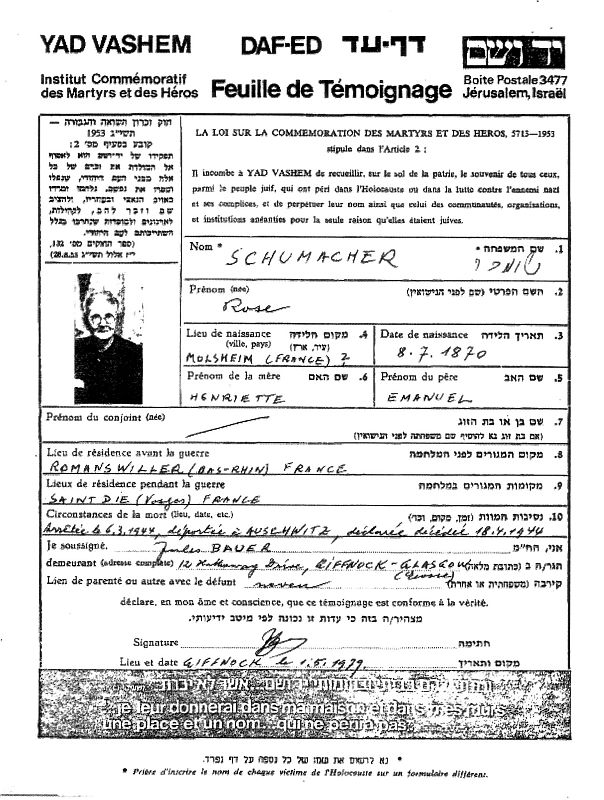 YAD VASHEM DAF-ED דף-עד יד ושם
Institut Commémoratif
des Martyrs et des Héros
Feuille de Témoignage
Boite Postale 3477
Jérusalem, Israël
חוק זכרון השואה והגבורה —
תשי"ג 1953
קובע בסעיף מס' 2:
תפקידו של יד-ושם הוא לאסוף
אל המולדת את זכרם של כל
אלה מבני העם היהודי, שנפלו
ומסרו את נפשם, נלחמו ומרדו
באויב הנאצי ובעוזריו, ולהציב
שם וזכר להם, לקהילות,
לארגונים ולמוסדות שנחרבו בגלל
השתייכותם לעם היהודי.
(ספר החוקים מס' 132,
י"ז אלול תשי"ג 28.8.53)
LA LOI SUR LA COMMEMORATION DES MARTYRS ET DES HEROS, 5713—1953
stipule dans l'Article 2 :
Il incombe à YAD VASHEM de recueillir, sur le sol de la patrie, le souvenir de tous ceux,
parmi le peuple juif, qui ont péri dans l'Holocauste ou dans la lutte contre l'ennemi nazi
et ses complices, et de perpétuer leur nom ainsi que celui des communautés, organisations,
et institutions anéanties pour la seule raison qu'elles étaient juives.
Nom * 1. שם המשפחה *
SCHUMACHER
Prénom (née) 2. השם הפרטי (שם לפני הנישואין)
Rose
Lieu de naissance 4. מקום הלידה
(ville, pays) (עיר, ארץ)
MOLSHEIM (FRANCE) ?
Date de naissance 3. תאריך הלידה
8.7.1870
Prénom de la mère 6. שם האם
HENRIETTE
Prénom du père 5. שם האב
EMANUEL
Prénom du conjoint (née) 7. שם בן או בת הזוג
(אם בת זוג נא להוסיף שם משפחתה לפני הנישואין)
Lieu de résidence avant la guerre 8. מקום המגורים לפני המלחמה
ROMANSWILLER (BAS-RHIN) FRANCE
Lieux de résidence pendant la guerre 9. מקומות המגורים במלחמה
SAINT DIE (Vosges) FRANCE
Circonstances de la mort (lieu, date, etc.) 10. נסיבות המוות (זמן, מקום, וכו')
Arrêtée le 6.3.1944, déportée à AUSCHWITZ, déclarée décédée 18.4.1944
Je soussigné, Jules BAUER אני, הח"מ
demeurant (adresse complète) 12 Hathaway Drive, GIFFNOCK-GLASGOW (Ecosse) הגר/ה ב (כתובת מלאה)
Lien de parenté ou autre avec le défunt neveu קירבה (משפחתית או אחרת)
déclare, en mon âme et conscience, que ce témoignage est conforme à la vérité.
מצהיר/ה בזה כי עדות זו נכונה לפי מיטב ידיעותי.
Signature חתימה
Lieu et date GIFFNOCK le 1.5.1979. מקום ותאריך
je leur donnerai dans ma maison et dans mes murs
une place et un nom... qui ne périra pas
* נא לרשום את שמו של כל נספה על דף נפרד.
* Prière d'inscrire le nom de chaque victime de l'Holocauste sur un formulaire différent.